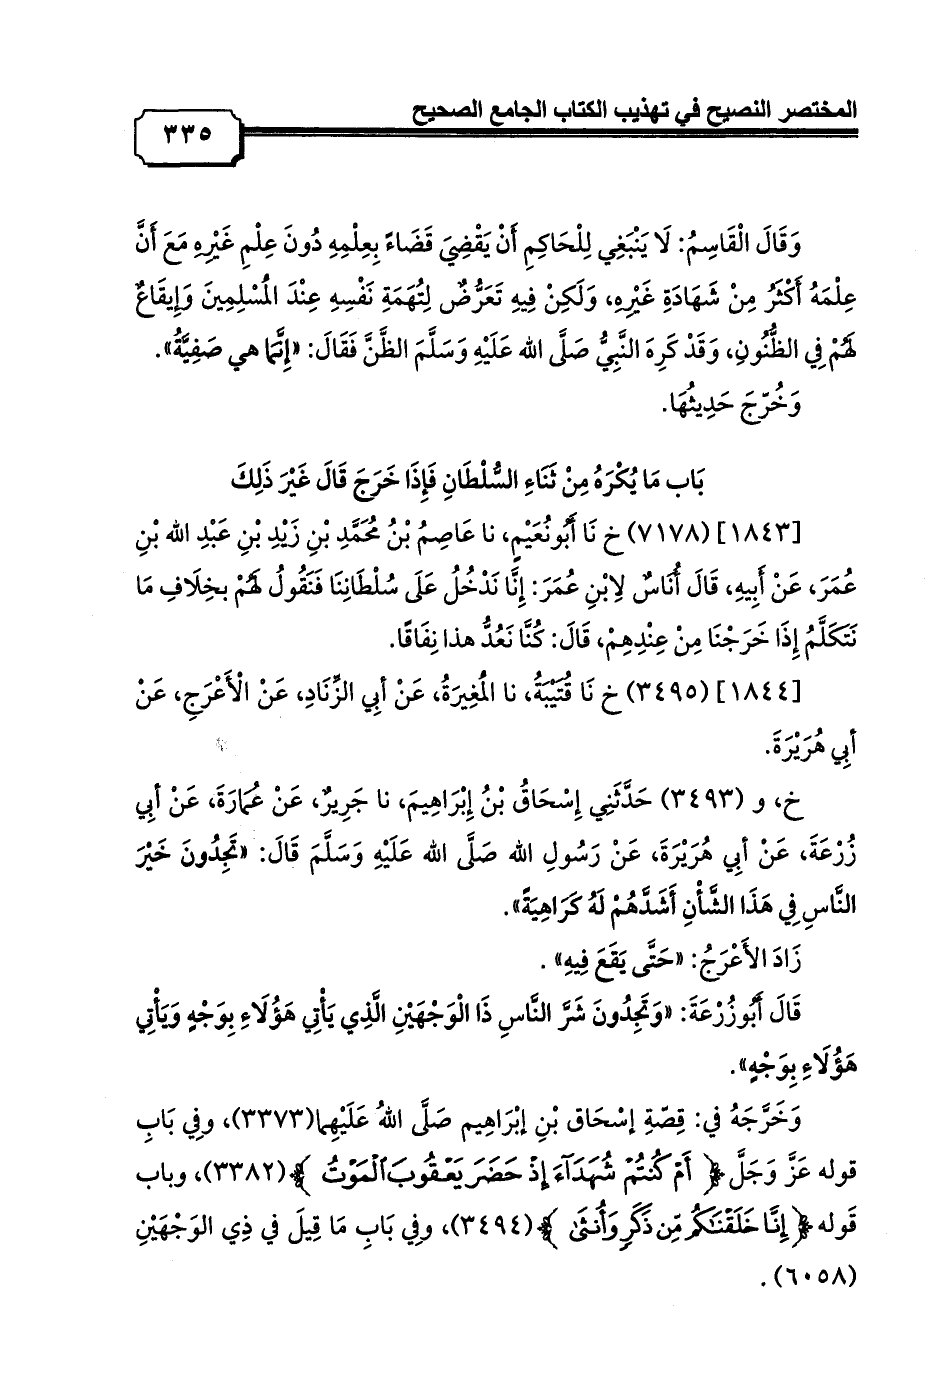 المختصر النصيح في تهذيب الكتاب الجامع الصحيح
٣٣٥
وَقَالَ الْقَاسِمُ: لَا يَنْبَغِي لِلْحَاكِمِ أَنْ يَقْضِيَ قَضَاءً بِعِلْمِهِ دُونَ عِلْمِ غَيْرِهِ مَعَ أَنَّ
عِلْمَهُ أَكْثَرُ مِنْ شَهَادَةِ غَيْرِهِ، وَلَكِنْ فِيهِ تَعَرُّضٌ لِتُهَمَةِ نَفْسِهِ عِنْدَ المُسْلِمِينَ وَإِيقَاعٌ
لَهُمْ فِي الظُّنُونِ، وَقَدْ كَرِهَ النَّبِيُّ صَلَّى الله عَلَيْهِ وَسَلَّمَ الظَّنَّ فَقَالَ: «إِنَّمَا هي صَفِيَّةُ».
وَخُرِّجَ حَدِيثُهَا.
بَاب مَا يُكْرَهُ مِنْ ثَنَاءِ السُّلْطَانِ فَإِذَا خَرَجَ قَالَ غَيْرَ ذَلِكَ
[١٨٤٣] (٧١٧٨) خ نَا أَبُونُعَيْمٍ، نا عَاصِمُ بْنُ مُحَمَّدِ بْنِ زَيْدِ بْنِ عَبْدِ الله بْنِ
عُمَرَ، عَنْ أَبِيهِ، قَالَ أُنَاسٌ لِابْنِ عُمَرَ: إِنَّا نَدْخُلُ عَلَى سُلْطَانِنَا فَنَقُولُ لَهُمْ بِخِلَافِ مَا
نَتَكَلَّمُ إِذَا خَرَجْنَا مِنْ عِنْدِهِمْ، قَالَ: كُنَّا نَعُدُّ هذا نِفَاقًا.
[١٨٤٤] (٣٤٩٥) خ نَا قُتَيْبَةُ، نا المُغِيرَةُ، عَنْ أبي الزِّنَادِ، عَنْ الْأَعْرَجِ، عَنْ
أبِي هُرَيْرَةَ.
خ، و (٣٤٩٣) حَدَّثَنِي إِسْحَاقُ بْنُ إِبْرَاهِيمَ، نا جَرِيرٌ، عَنْ عُمَارَةَ، عَنْ أبي
زُرْعَةَ، عَنْ أبي هُرَيْرَةَ، عَنْ رَسُولِ الله صَلَّى الله عَلَيْهِ وَسَلَّمَ قَالَ: «تَجِدُونَ خَيْرَ
النَّاسِ فِي هَذَا الشَّأْنِ أَشَدَّهُمْ لَهُ كَرَاهِيَةً».
زَادَ الأَعْرَجُ: «حَتَّى يَقَعَ فِيهِ» .
قَالَ أَبُوزُرْعَةَ: «وَتَجِدُونَ شَرَّ النَّاسِ ذَا الْوَجْهَيْنِ الَّذِي يَأْتِي هَؤُلَاءِ بِوَجْهٍ وَيَأْتِي
هَؤُلَاءِ بِوَجْهٍ».
وَخَرَّجَهُ في: قِصَّةِ إسْحَاق بْنِ إبْرَاهِيم صَلَّى اللهُ عَلَيْهِما(٣٣٧٣)، وفِي بَابِ
قوله عَزَّ وَجَلَّ ﴿أَمْ كُنتُمْ شُهَدَآءَ إِذْ حَضَرَ يَعْقُوبَ ٱلْمَوْتُ﴾(٣٣٨٢)، وباب
قَوله ﴿إِنَّا خَلَقْنَٰكُم مِّن ذَكَرٍ وَأُنثَىٰ﴾(٣٤٩٤)، وفِي بَابِ مَا قِيلَ في ذِي الوَجْهَيْنِ
(٦٠٥٨) .